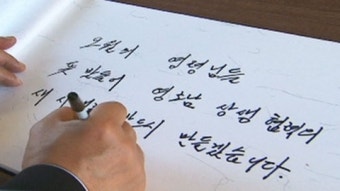 오월의 영령님들
뜻 받들어 영호남 상생 협력의
새 반드시 만들겠습니다.